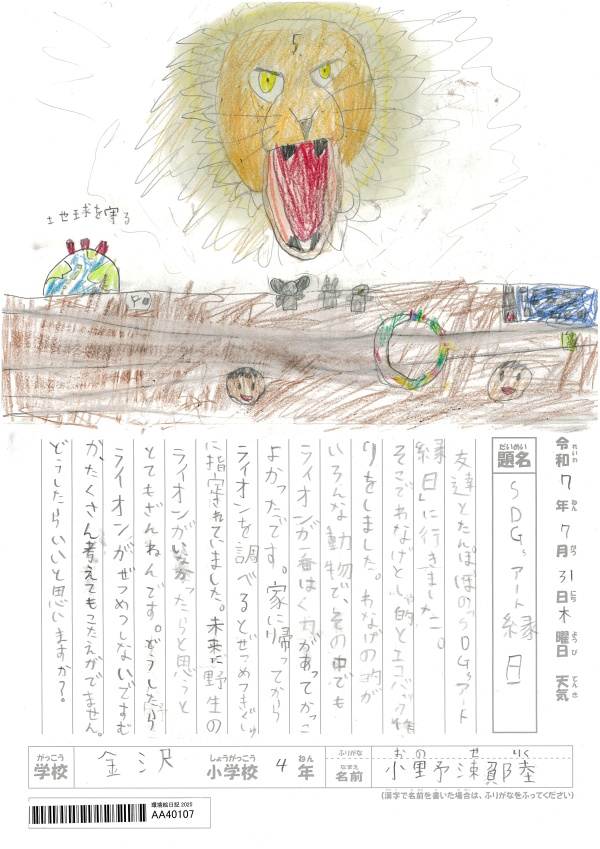 地球を守る
令和7年7月31日木曜日 天気
れいわ ねん がつ にち ようび てんき
だいめい
題名
SDGsアート縁日
友達とたんぽぽのSDGsアート
縁日に行きました。
そこでわなげとしゃ的とエコバック作
りをしました。わなげの的が
いろんな動物で、その中でも
ライオンが一番はく力があってかっこ
よかったです。家に帰ってから
ライオンを調べるとぜつめつきぐしゅ
に指定されていました。未来に野生の
ライオンがいなかったらと思うと
とてもざんねんです。どうしたら
ライオンがぜつめつしないですむ
か、たくさん考えてもこたえがでません。
どうしたらいいと思いますか?。
がっこう
学校
金沢
しょうがっこう
小学校
4
ねん
年
ふりがな
おの せ りく
なまえ
名前
小野
陸
(漢字で名前を書いた場合は、ふりがなをふってください)
環境絵日記 2025
AA40107